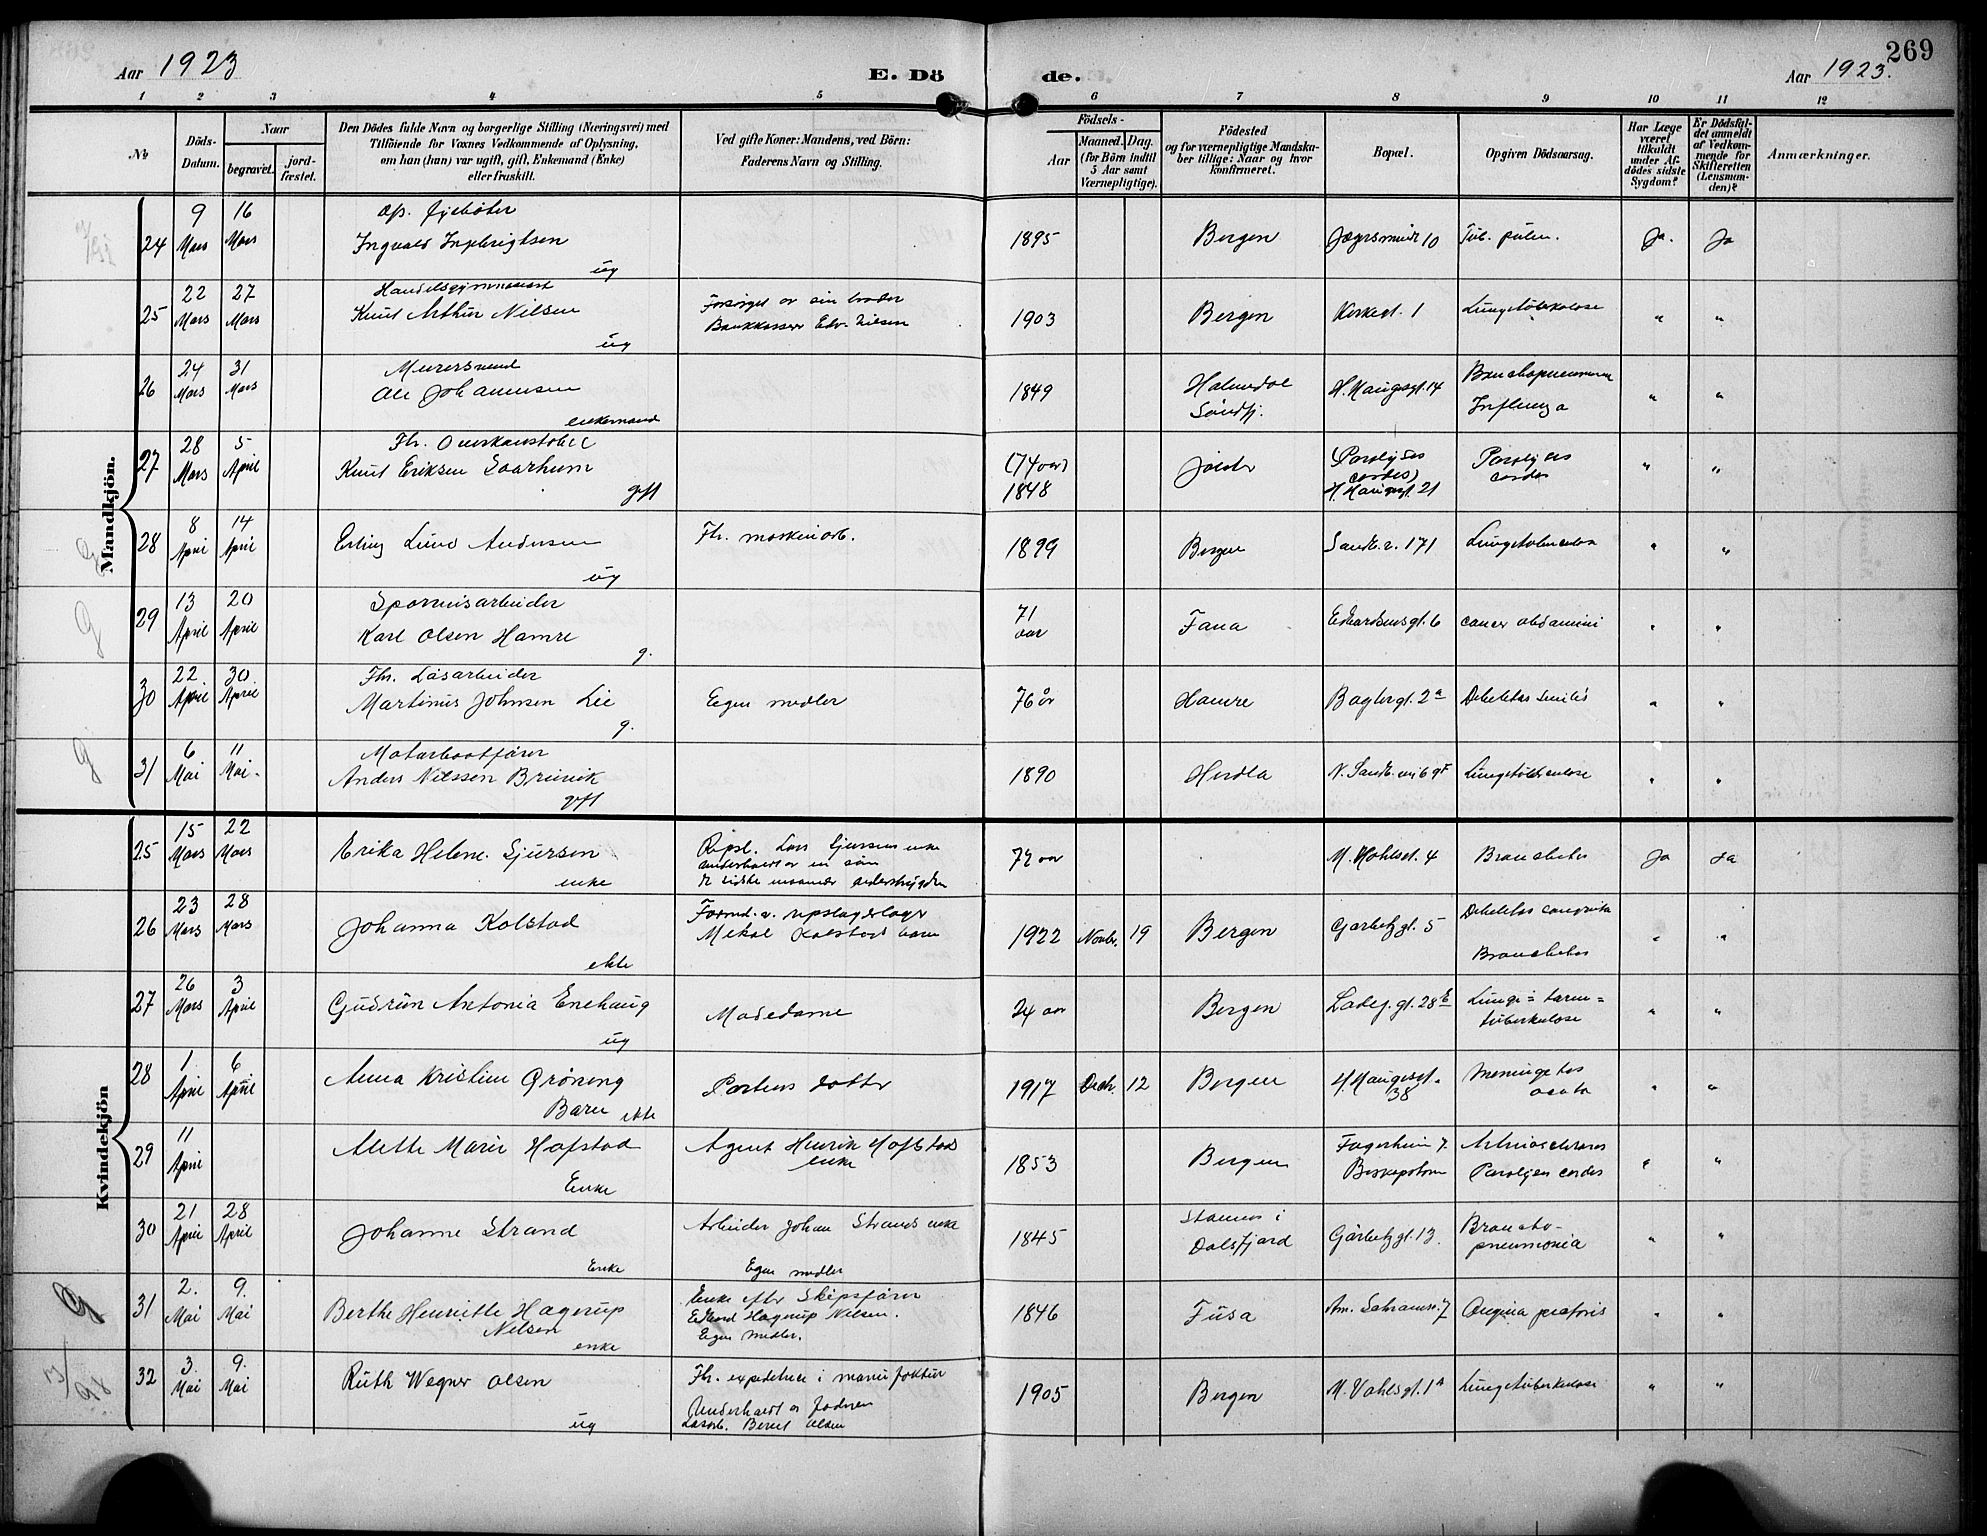 269
Aar 1923
E. Dö
de.
Aar 1923.
1 2 3 4 5 6 7 8 9 10 11 12
No
Döds-
Datum.
Naar
begravet.
jord-
fæstet.
Den Dödes fulde Navn og borgerlige Stilling (Næringsvei) med
Tilföiende for Voxnes Vedkommende af Oplysning,
om han (hun) var ugift, gift, Enkemand (Enke)
eller fraskilt.
Ved gifte Koner: Mandens, ved Börn:
Faderens Navn og Stilling.
Födsels-
Aar
Maaned.
Dag.
(for Börn indtil
5 Aar samt
Værnepligtige).
Födested
og for værnepligtige Mandska-
ber tillige: Naar og hvor
konfirmeret.
Bopæl.
Opgiven Dödsaarsag.
Har Læge
været
tilkaldt
under Af-
dödes sidste
Sygdom?
Er Dödsfal-
det anmeldt
af Vedkom-
mende for
Skifteretten
(Lensman-
den)?
Anmærkninger.
Mandkjön.
24 9 Mars 16 Mars
Ingvald
ug
1895 Bergen 10 Tub. pulm. Ja. Ja
25 22 Mars 27 Mars
Handelsgymnasiast
Knut Arthur Nilsen
ug
Forsörget av sin broder
Bankkasser Edv. Nilsen
1903 Bergen Kirkegt. 1 Lungetuberkulose " "
26 24 Mars 31 Mars
Murersvend
Ole Johannesen
enkemand
1849 Holmedal
Söndfj.
H. Haugesgt. 14
Bronchopneumoni
Influenza
" "
27 28 Mars 5 April
Knut Eriksen
gift
(74 aar)
1848
Jölster
(Paralyses
cordis)
H. Haugesgt. 21
Paralyses
cordis
" "
28 8 April 14 April
Erling Lund Andersen
ug
Fhv. maskinarb.
1899 Bergen Sandv. v. 171 Lungetuberculose " "
29 13 April 20 April
Sporveisarbeider
Karl Olsen Hamre
g.
71
aar
Fana Edvardsensgt. 6 cancer abdomini " "
30 22 April 30 April
Fhv. Lösarbeider
Martinus Johnsen Lie
g.
Egne midler
76 år Hamre Baglergt. 2a Debilitas senilis " "
31 6 Mai 11 Mai.
Motorbaatförer
Anders Nilssen
gift
1890 Herdla Lungetuberculose " "
Kvindekjön
25 15 Mars 22 Mars
Erika Helene Sjursen
enke
Ripsl. Lars Sjursens enke
underholdt av en sön
72 aar M. Vahlsgt. 4 Bronchitis Ja Ja
26 23 Mars 28 Mars
Johanna Kolstad
ekte
Formd. v. ripslagerlager
Mikal Kolstads barn
1922 Novbr. 19 Bergen Garbetzgt. 5
Debilitas congenita
Bronchitis
" "
27 26 Mars 3 April
Gudrun Antonia Enehaug
ug
Modedame
24 aar Bergen Ladeg. gt. 28E
Lunge= tarm=
tuberkulose
" "
28 1 April 6 April
Anna Kristine Gröning
Barn ekte
Portiers datter
1917 Decbr. 12 Bergen
H. Haugesgt.
38
Meningitis
acuta
" "
29 11 April
Alette Marie Hofstad
Enke
Agent Henrik Hofstads
enke
1853 Bergen
Fagerheim 7.
Arteriosclerosis
Paralysis cordis
" "
30 21 April 28 April
Johanne Strand
Enke
Arbeider Johan Strands enke
Egne midler
1845
Stamnes i
Dalsfjord
Garbetzgt. 13.
Broncho-
pneumonia
" "
g
31 2. Mai 9. Mai
Berthe Henriette Hagerup
Nilsen
enke
Enke efter Skibsförer
Edvard Hagerup Nilsen.
Egne midler.
1846 Fusa Am. Schramsv. 7 Angina pectoris " "
32 3. Mai 9. Mai
Ruth Wegner Olsen
ug
Fhv. expeditrice i manufaktur
Underholdt av faderen
Lösarb. Bernt Olsen
1905 Bergen M. Vahlsgt. 1A Lungetuberkulose " "